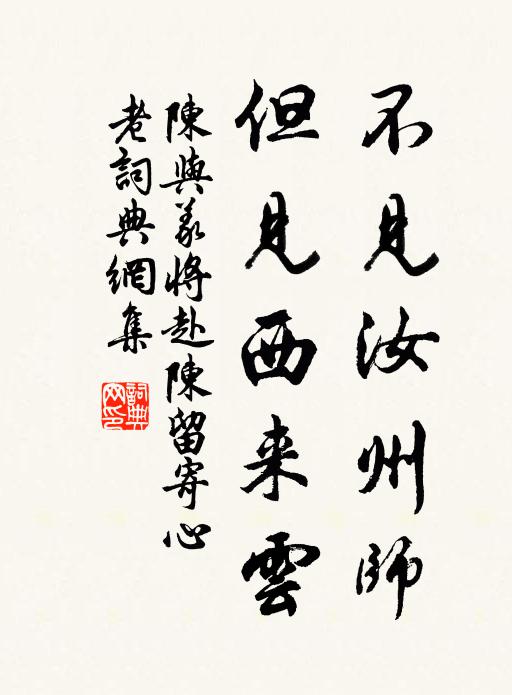 不見汝州師
但見西来雲
陳與義將赴陳留寄心
老詞典網集
詞典网印